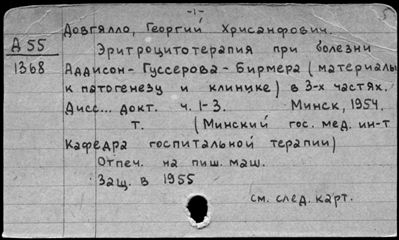 -1-
Довгялло, Георгий Хрисанфович.
А 55
1368
Эритроцитотерапия при болезни
Аддисон-Гуссерова-Бирмера (материалы
к патогенезу и клинике) в 3-х частях.
Дисс... докт. ч. 1-3. Минск, 1954.
т. (Минский гос. мед. ин-т
Кафедра госпитальной терапии)
Отпеч. на пиш. маш.
Защ. в 1955
см. след. карт.